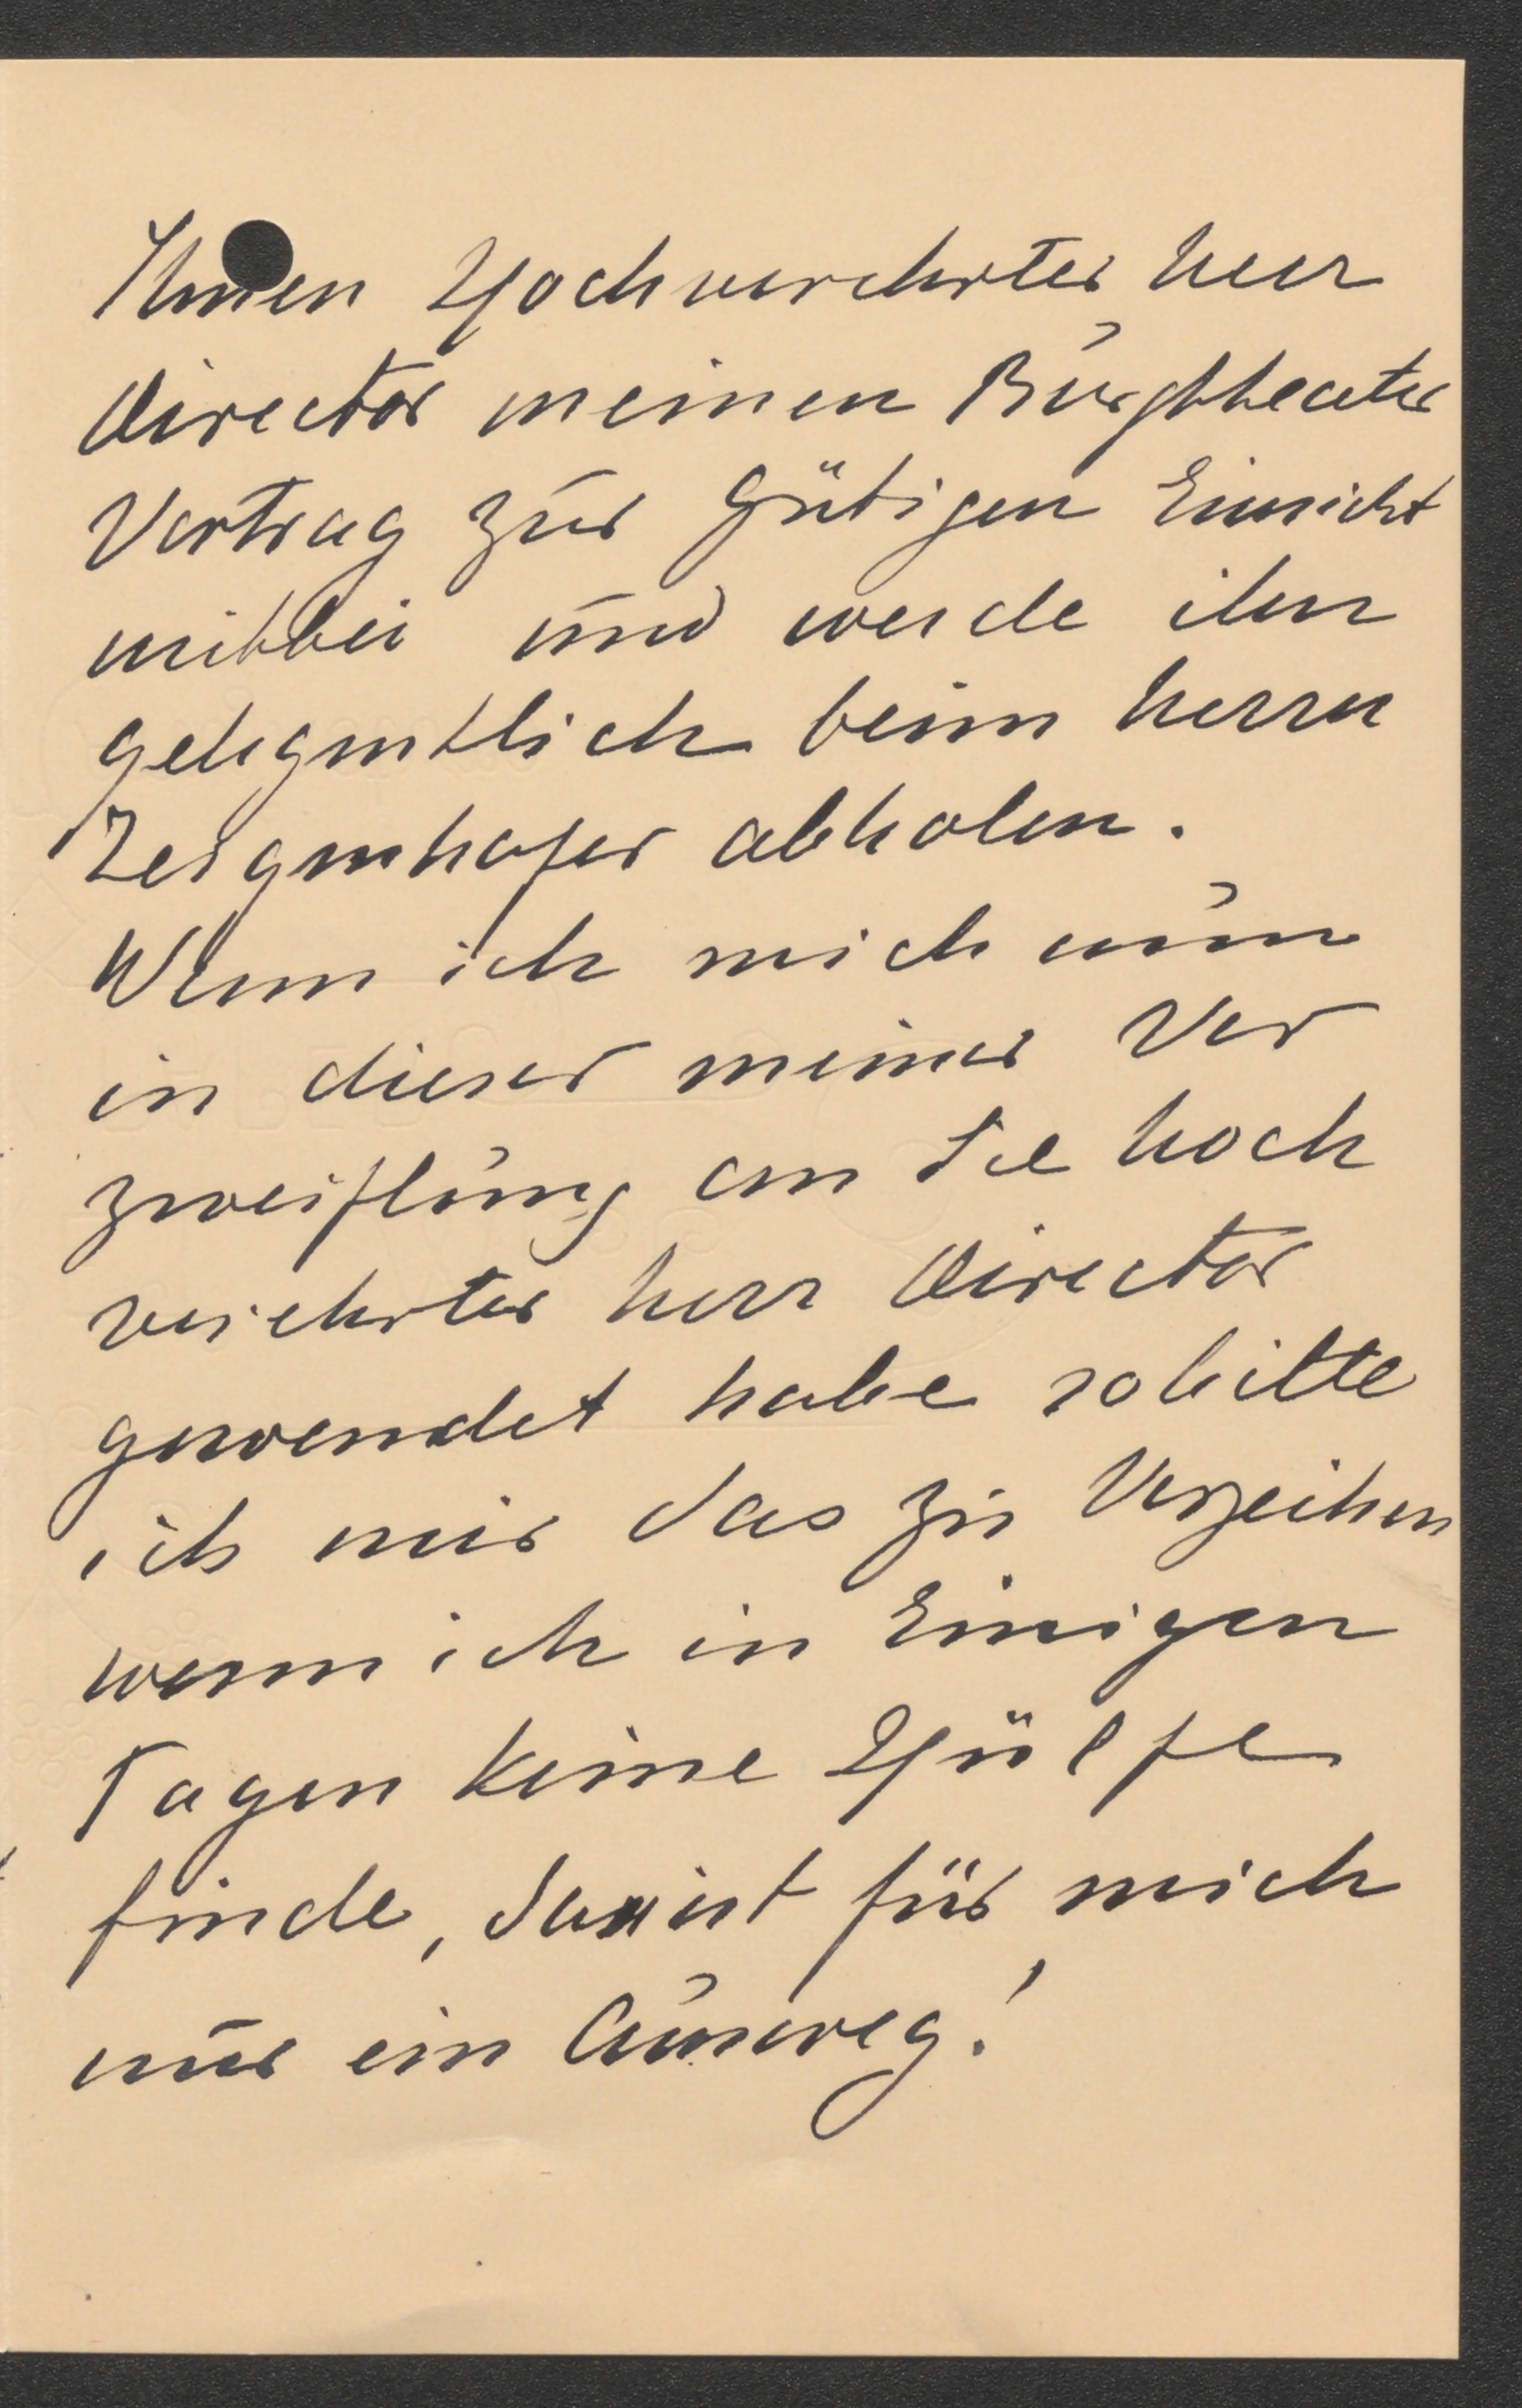 Ihnen Hochverehrter Herr
Director meinen Burgtheater
Vertrag zur Gütigen Einsicht
mitbei und werde ihn
gelegentlich beim Herrn
abholen.
Wenn ich mich nun
in dieser meiner Ver
zweiflung an Sie hoch
verehrter Herr Director
gewendet habe so bitte
ich mir das zu Verzeihen
wenn ich in Einigen
Tagen keine Hülfe
finde, dann ist für mich
nur ein Ausweg!